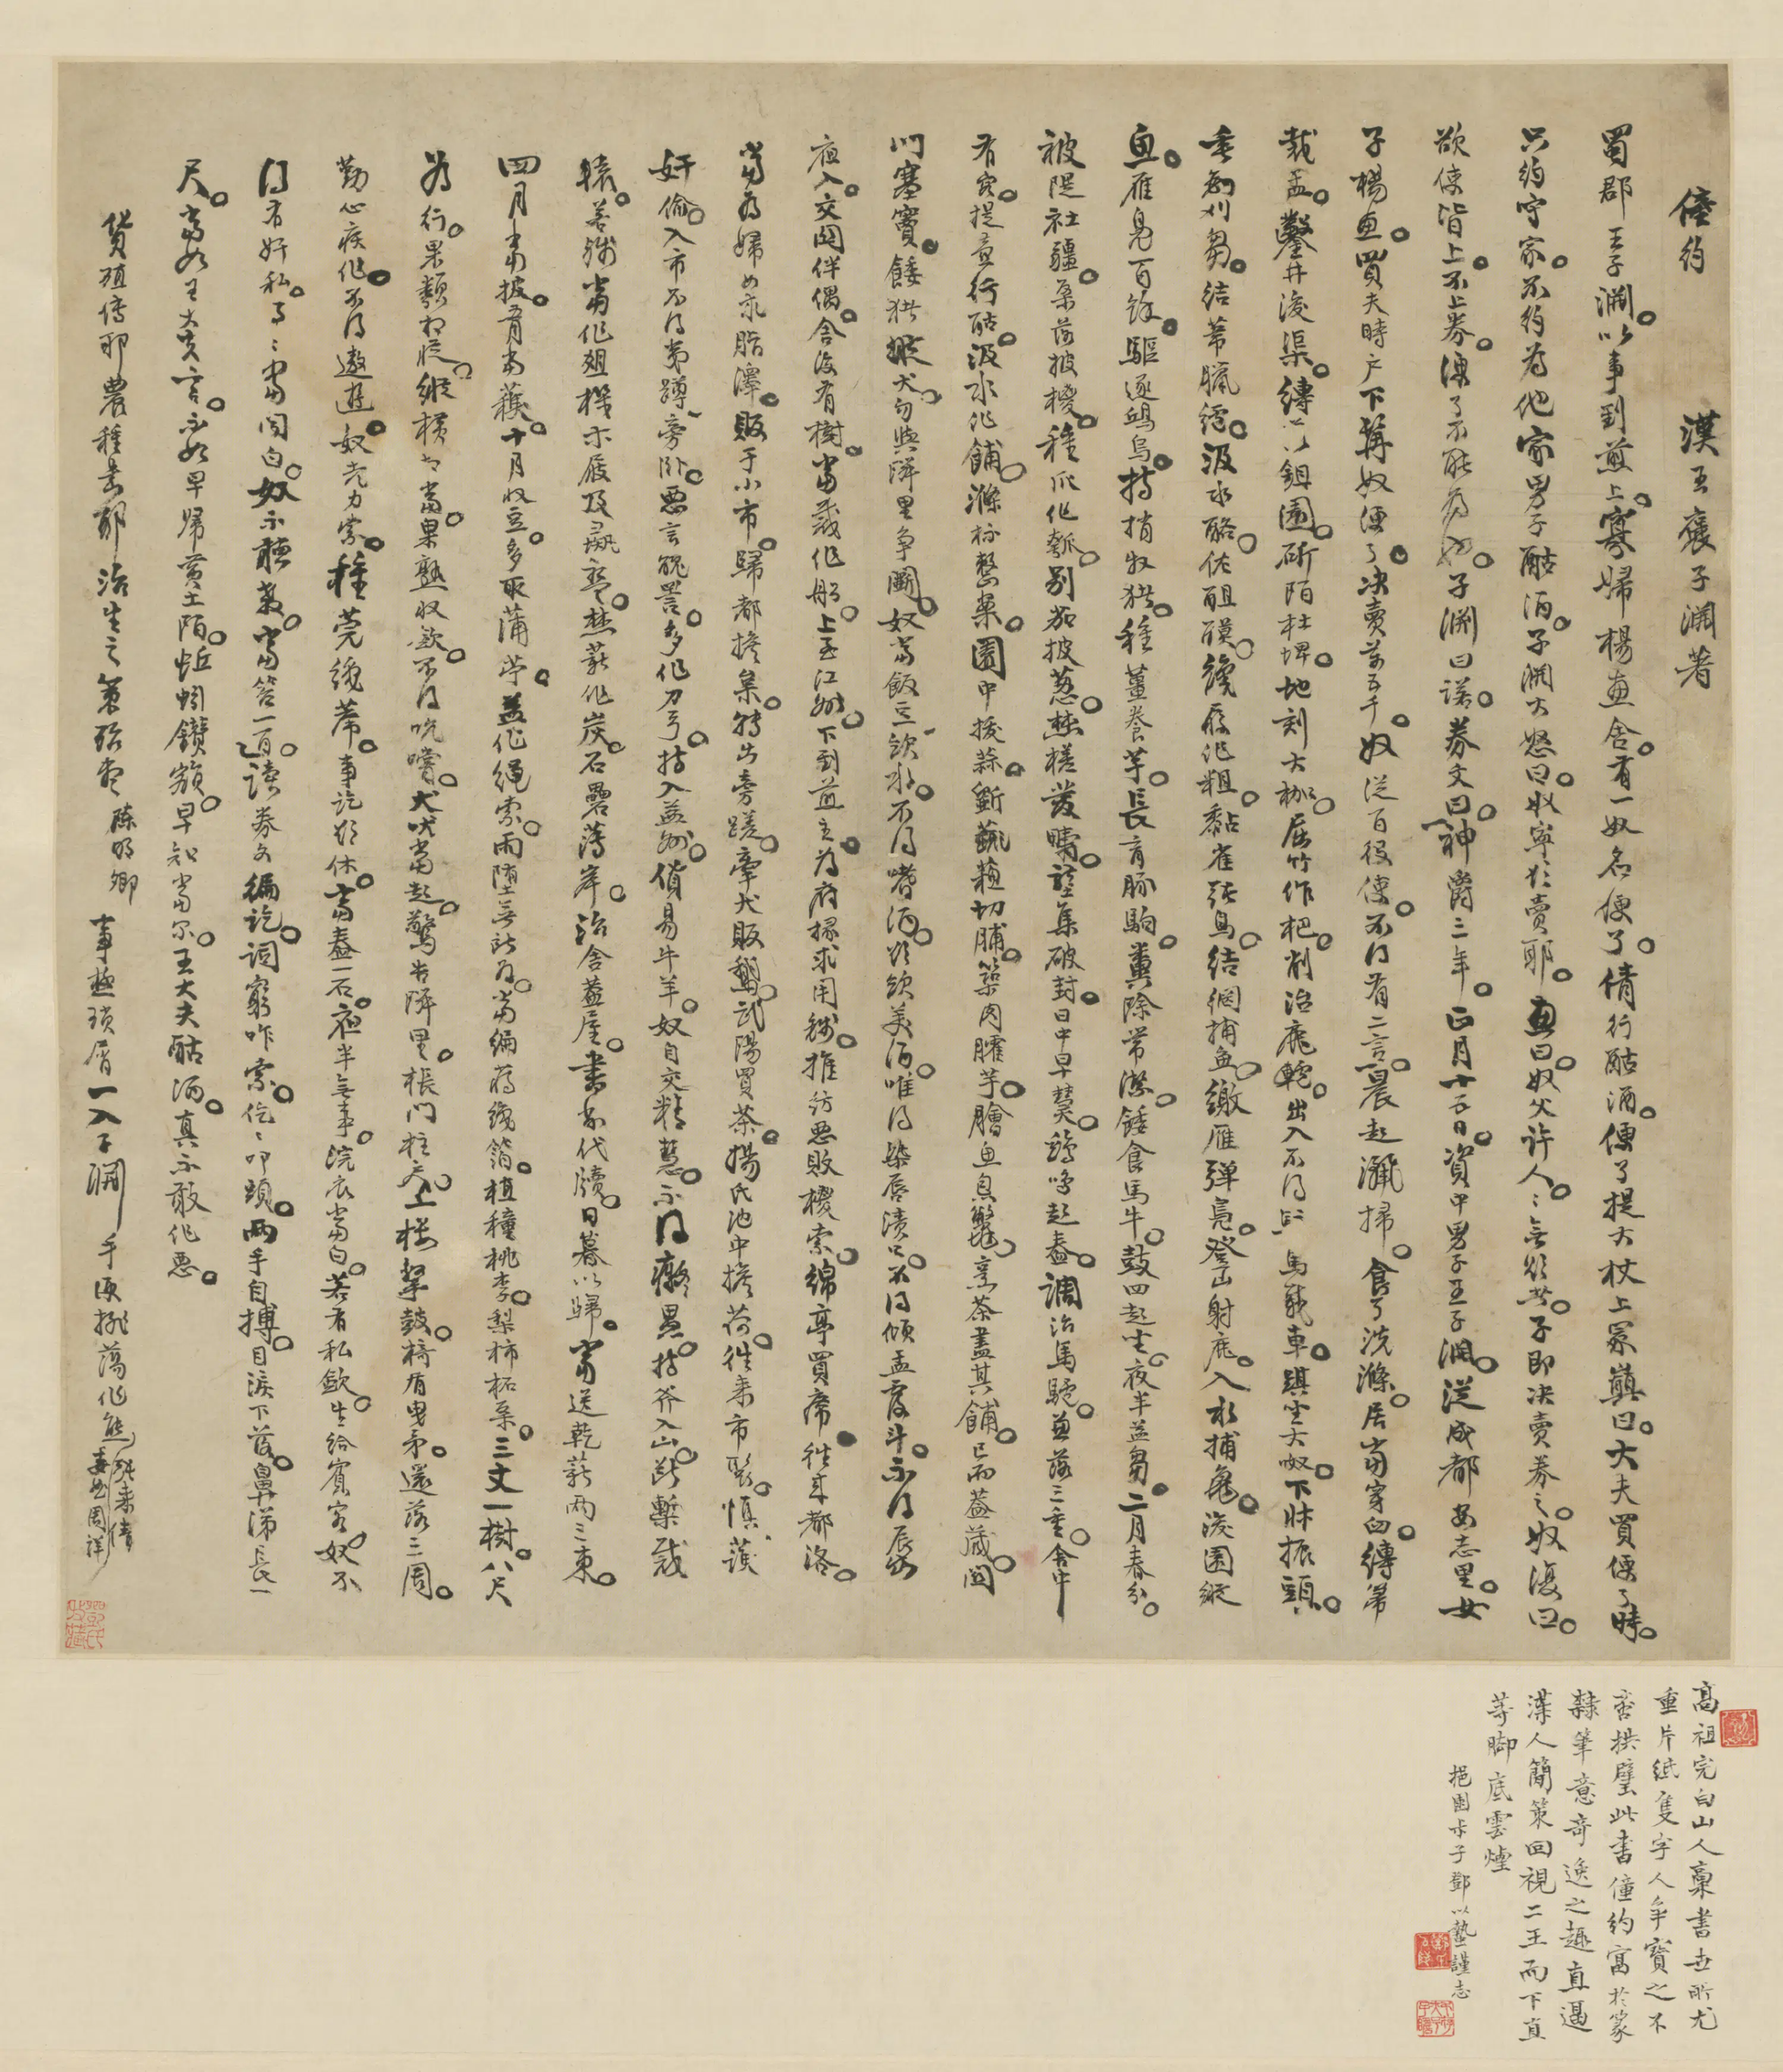 僮約　漢王褒子淵著
蜀郡王子淵以事到煎上寡婦楊惠舍有一奴名便了倩行酤酒便了提大杖上冢巔曰大夫買便了時
只約守家不約為他家男子酤酒子淵大怒曰奴寧欲賣耶惠曰奴父許人人無欲者子即決賣券之奴復曰
欲使皆上不上券便了不能為也子淵曰諾券文曰神爵三年正月十五日資中男子王子淵從成都安志里女
子楊惠買夫時戶下髯奴便了決賣萬五千奴從百役使不得有二言晨起灑掃食了洗滌居當穿臼縛帚
裁盂鑿井浚渠縛落鉏園斫陌杜埤地刻大枷屈竹作杷削治鹿轆出入不得騎馬載車踑坐大呶下牀振頭
垂鉤刈芻結葦臘纑汲水酪佐䣯醾織履作粗黏雀張烏結網捕魚繳雁彈鳧登山射鹿入水捕龜浚園縱
魚雁鳧百餘驅逐鴟烏持捎牧猪種薑養芋長育豚駒糞除常潔餧食馬牛鼓四起坐夜半益芻二月春分
被隄杜疆桑落披椶種瓜作瓠別茄披蔥焚槎發疇壟集破封日中早熭鷄鳴起舂調治馬驢兼落三重舍中
有客提壺行酤汲水作餔滌杯整案園中拔蒜斷蘇切脯築肉臛芋膾魚炰鱉烹茶盡其餔已而蓋藏關
門塞竇餧猪縱犬勿與隣里爭鬭奴當飯豆飲水不得嗜酒欲飲美酒唯得染唇漬口不得傾盂覆斗不得辰出
夜入交關伴偶舍後有樹當裁作船上至江州下到煎主為府掾求用錢推紡惡敗椶索綿亭買席往來都洛
當為婦女求脂澤販于小市歸都擔枲轉出旁蹉牽犬販鵝武陽買茶楊氏池中擔荷往來市聚慎護
奸偷入市不得夷蹲旁臥惡言醜罵多作刀弓持入益州貨易牛羊奴自交精慧不得癡愚持斧入山斷槧裁
轅若殘當作俎機木屐及彘盤焚薪作炭石礨薄岸治舍蓋屋書削代牘日暮以歸當送乾薪兩三束
四月當披五月當穫十月收豆多取蒲苧益作繩索雨墮無所為當編蔣織箔植種桃李梨柿柘桑三丈一樹八尺
為行果類相從縱橫相當果熟收斂不得吮嘗犬吠當起驚告隣里棖門柱戶上樓擊鼓椅盾曳矛還落三周
勤心疾作不得遨遊奴老力索種莞織席事訖欲休當舂一石夜半無事浣衣當白若有私斂主給賓客奴不
得有奸私事事當關白奴不聽教當笞一百讀券文徧訖詞窮咋索仡仡叩頭兩手自搏目淚下落鼻涕長一
尺當如王大夫言不如早歸黃土陌蚯蚓鑽額早知當爾王大夫酤酒真不敢作惡
貨殖傳耶農種書耶治生之策殆盡　陳明卿　事極瑣屑一入子淵手便
高祖完白山人藁書世所尤
重片紙隻字人爭寶之不
啻拱璧此書僮約寓於篆
隸筆意奇逸之趣直逼
漢人簡策回視二王而下直
等脚底雲煙
鄧以蟄謹志